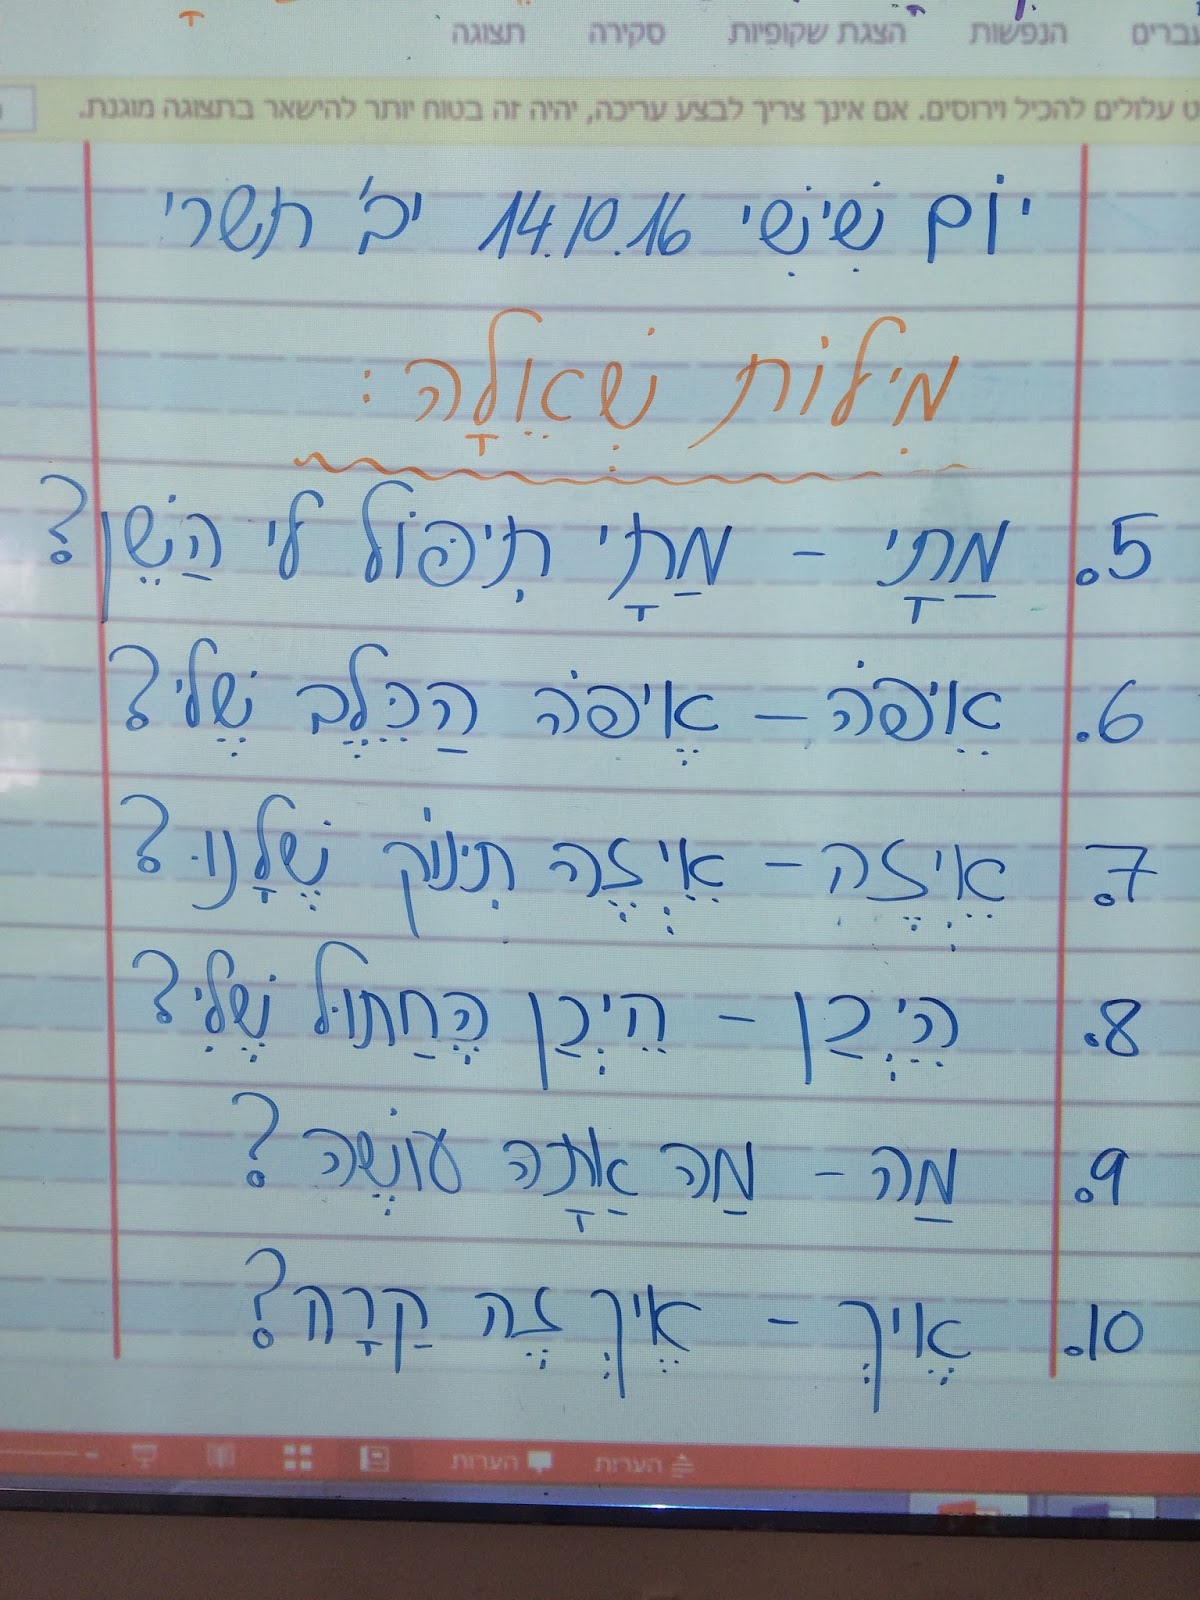 עברים הנפשות הצגת שקופיות סקירה תצוגה
ט עלולים להכיל וירוסים. אם אינך צריך לבצע עריכה, יהיה זה בטוח יותר להישאר בתצוגה מוגנת.
יוֹם שִׁישִׁי 14.10.16 יב' תשרי
מִילוֹת שְׁאֵולָה:
5. מַתָי - מַתָי תִיפּוֹל לי הַשֵׁן?
6. אֵיפֹה - אֶיפֹה הַכֵּלֶב שֶׁלי?
7. אֵיְזֶה - אֵיְזֶה תִינוֹק שֶׁלָנוּ?
8. הֵיְכַן - הֵיְכַן הֶחַתוּל שֶׁלִי?
9. מַה - מַה אַתָה עוֹשֶׂה?
10. אֶיךְ - אֶיךְ זֶה קַרָה?
הערות הערות